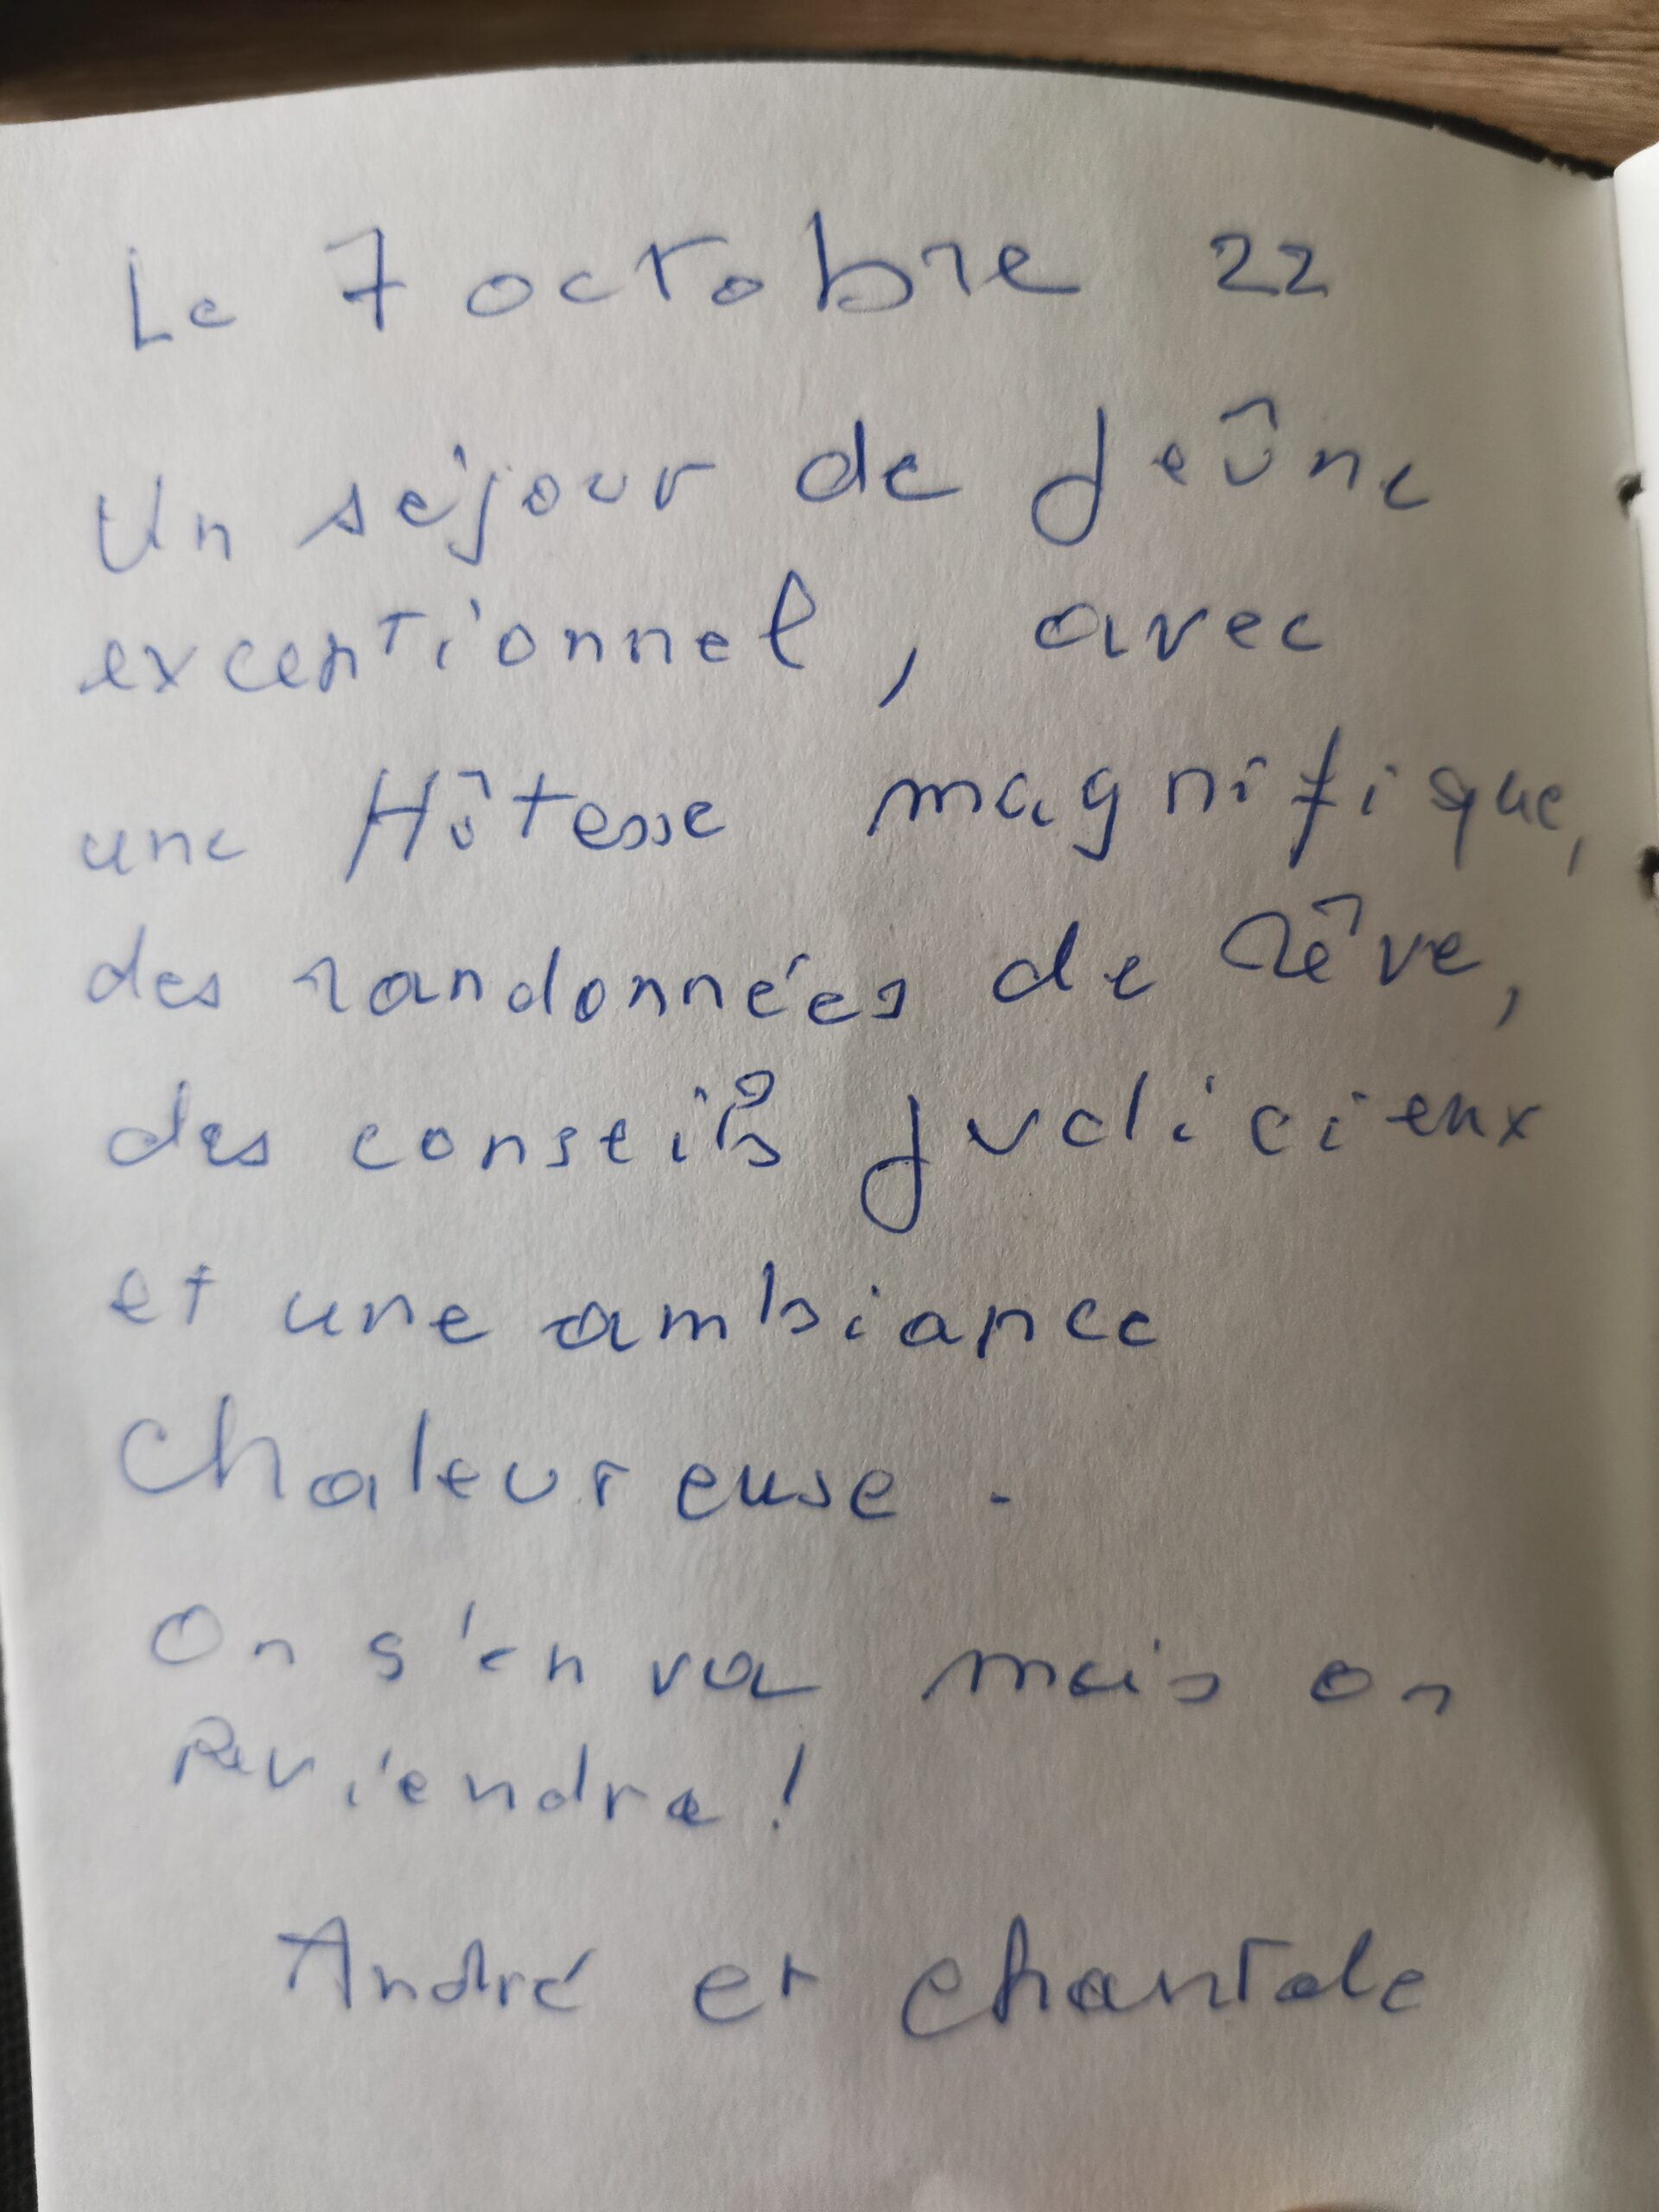 Le 7 octobre 22
Un séjour de jeûne
exceptionnel, avec
une Hôtesse magnifique,
des randonnées de rêve,
des conseils judicieux
et une ambiance
chaleureuse.
On s'en va mais on
Reviendra !
André et chantale